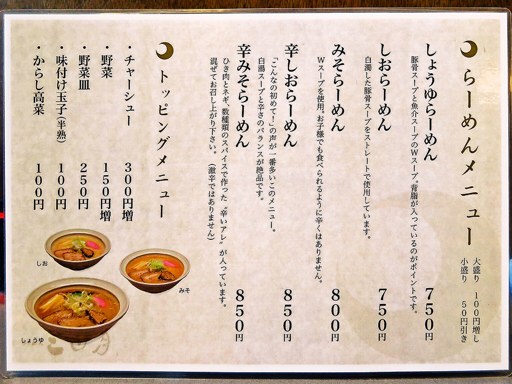 らーめんメニュー
大盛り 100円増し
小盛り 50円引き
しょうゆらーめん 750円
豚骨スープと魚介スープのWスープ。背脂が入っているのがポイントです。
しおらーめん 750円
白濁した豚骨スープをストレートで使用しています。
みそらーめん 800円
Wスープを使用。お子様でも食べられるように辛くはありません。
辛しおらーめん 850円
「こんなの初めて！」の声が一番多いこのメニュー。
白湯スープと辛さのバランスが絶品です。
辛みそらーめん 850円
ひき肉とネギ、数種類のスパイスで作った“辛いアレ”が入っています。
混ぜてお召し上がり下さい。（激辛ではありません）
トッピングメニュー
・チャーシュー 300円増
・野菜 150円増
・野菜皿 250円
・味付け玉子（半熟） 100円
・からし高菜 100円
しお
みそ
しょうゆ